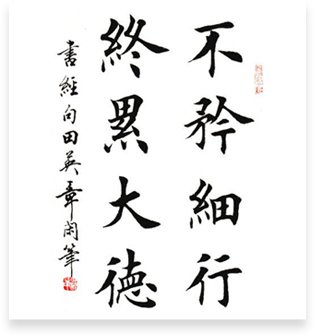 不矜細行
終累大德
書經句田英章闲筆